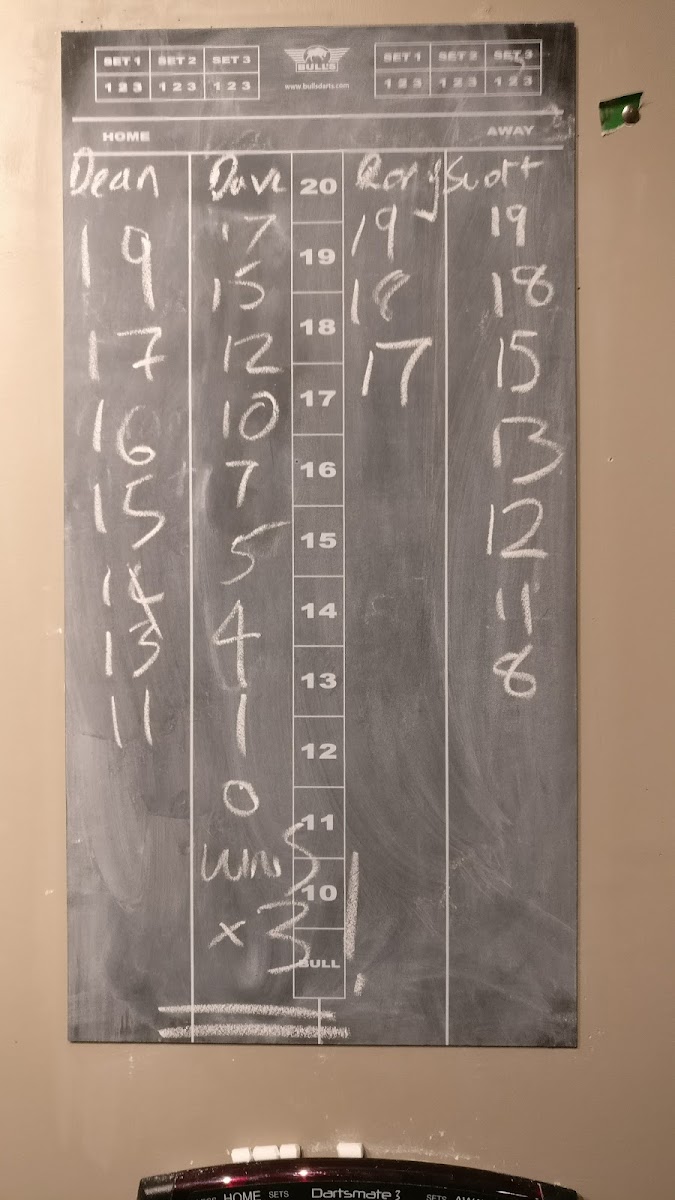 SET 1 SET 2 SET 3
1 2 3 1 2 3 1 2 3
BULL'S
www.bullsdarts.com
SET 1 SET 2 SET 3
1 2 3 1 2 3 1 2 3
HOME AWAY
Dean Dave 20 Rory Scott
19 17 19 19 19
15 18 18 18
17 12 17 17 15
16 10 16 13
15 7 15 12
14 5 14 11
13 4 13 8
11 1 12
0 11
wins 10
x3! BULL
HOME SETS Dartsmate 3 SETS